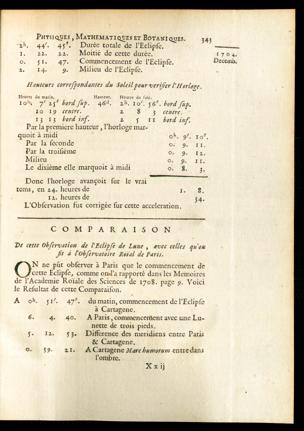 PHYSIQUES, MATHEMATIQUES ET BOTANIQUES. 343
2h. 44'. 45". Durée totale de l'Eclipse. 1704.
1. 22. 22. Moitié de cette durée. Decemb.
0. 51. 47. Commencement de l'Eclipse.
2. 14. 9. Milieu de l'Eclipse.
Hauteurs correspondantes du Soleil pour verifier l'Horloge.
Heures du matin. Hauteur. Heures du soir.
10h. 7' 25" bord sup. 46d. 2h. 10'. 56". bord sup.
10 19 centre. 2 8 3 centre.
13 13 bord inf. 2 5 11 bord inf.
Par la premiere hauteur, l'horloge mar-
quoit à midi 0h. 9'. 10".
Par la seconde 0. 9. 11.
Par la troisiéme 0. 9. 12.
Milieu 0. 9. 11.
Le dixiéme elle marquoit à midi 0. 8. 3.
Donc l'horloge avançoit sur le vrai
tems, en 24. heures de 1. 8.
12. heures de 34.
L'Observation fut corrigée sur cette acceleration.
COMPARAISON
De cette Observation de l'Eclipse de Lune, avec celles qu'on
fit à l'Observatoire Roïal de Paris.
ON ne pût observer à Paris que le commencement de
cette Eclipse, comme on l'a rapporté dans les Memoires
de l'Academie Roïale des Sciences de 1708. page 9. Voici
le Resultat de cette Comparaison.
A 0h. 51'. 47". du matin, commencement de l'Eclipse
à Cartagene.
6. 4. 40. A Paris, commencement avec une Lu-
nette de trois pieds.
5. 12. 53. Difference des meridiens entre Paris
& Cartagene.
0. 59. 21. A Cartagene Mare humorum entre dans
l'ombre.
X x ij